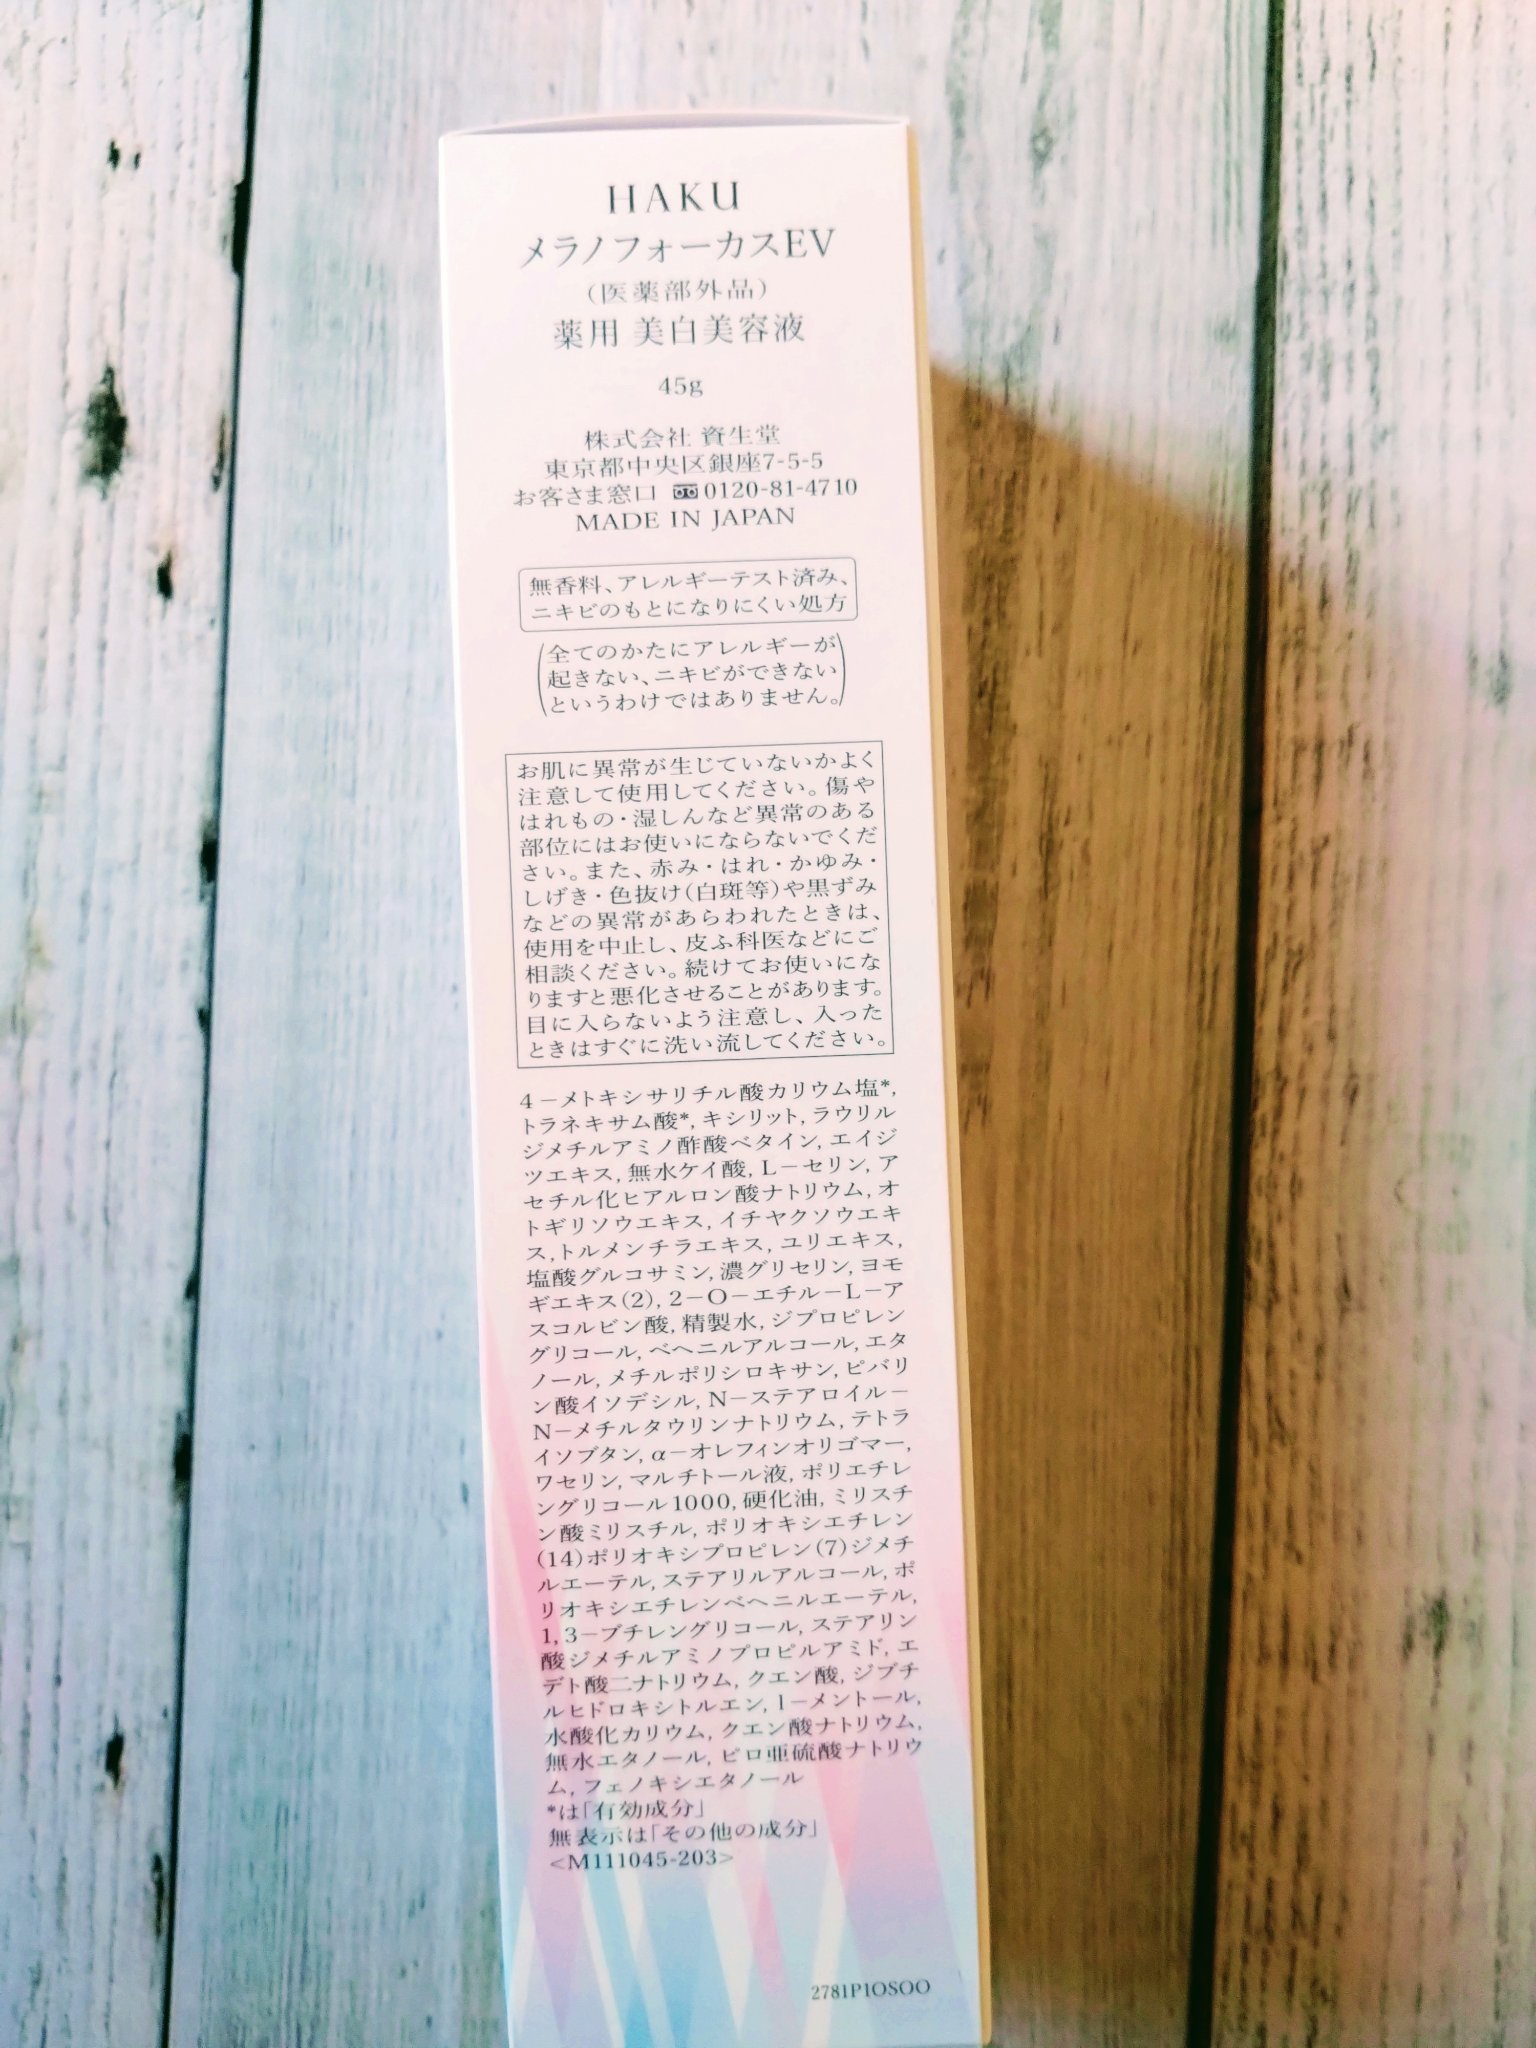 HAKU
メラノフォーカスEV
(医薬部外品)
薬用 美白美容液
45g
株式会社 資生堂
東京都中央区銀座7-5-5
お客さま窓口 0120-81-4710
MADE IN JAPAN
無香料、アレルギーテスト済み、
ニキビのもとになりにくい処方
(全てのかたにアレルギーが
起きない、ニキビができない
というわけではありません。)
お肌に異常が生じていないかよく
注意して使用してください。傷や
はれもの・湿しんなど異常のある
部位にはお使いにならないでくだ
さい。また、赤み・はれ・かゆみ・
しげき・色抜け(白斑等)や黒ずみ
などの異常があらわれたときは、
使用を中止し、皮ふ科医などにご
相談ください。続けてお使いにな
りますと悪化させることがあります。
目に入らないよう注意し、入った
ときはすぐに洗い流してください。
4-メトキシサリチル酸カリウム塩*,
トラネキサム酸*, キシリット, ラウリル
ジメチルアミノ酢酸ベタイン, エイジ
ツエキス, 無水ケイ酸, L-セリン, ア
セチル化ヒアルロン酸ナトリウム, オ
トギリソウエキス, イチヤクソウエキ
ス, トルメンチラエキス, ユリエキス,
塩酸グルコサミン, 濃グリセリン, ヨモ
ギエキス(2), 2-O-エチル-L-ア
スコルビン酸, 精製水, ジプロピレン
グリコール, ベヘニルアルコール, エタ
ノール, メチルポリシロキサン, ピバリ
ン酸イソデシル, N-ステアロイル-
N-メチルタウリンナトリウム, テトラ
イソブタン, α-オレフィンオリゴマー,
ワセリン, マルチトール液, ポリエチレ
ングリコール1000, 硬化油, ミリスチ
ン酸ミリスチル, ポリオキシエチレン
(14)ポリオキシプロピレン(7)ジメチ
ルエーテル, ステアリルアルコール, ポ
リオキシエチレンベヘニルエーテル,
1,3-ブチレングリコール, ステアリン
酸ジメチルアミノプロピルアミド, エ
デト酸二ナトリウム, クエン酸, ジブチ
ルヒドロキシトルエン, l-メントール,
水酸化カリウム, クエン酸ナトリウム,
無水エタノール, ピロ亜硫酸ナトリウ
ム, フェノキシエタノール
*は「有効成分」
無表示は「その他の成分」
<M111045-203>
2781P1OSOO